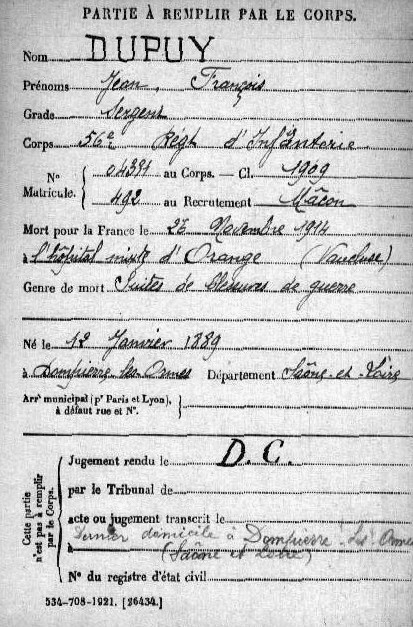 PARTIE À REMPLIR PAR LE CORPS.
Nom DUPUY
Prénoms Jean, François
Grade Sergent
Corps 56e Régt d'Infanterie
No 04331 au Corps. — Cl. 1909
Matricule. 492 au Recrutement Mâcon
Mort pour la France le Novembre 1914
à l'hôpital mixte d'Orange (Vaucluse)
Genre de mort Suites de blessures de guerre
Né le 12 Janvier 1889
à Dompierre les Ormes Département Saône-et-Loire
Arrt municipal (pr Paris et Lyon), à défaut rue et No.
Cette partie n'est pas à remplir par le Corps.
Jugement rendu le D.C.
par le Tribunal de
acte ou jugement transcrit le
Dernier domicile à Dompierre les Ormes
à (Saône et Loire)
No du registre d'état civil
534-708-1921. [26434.]